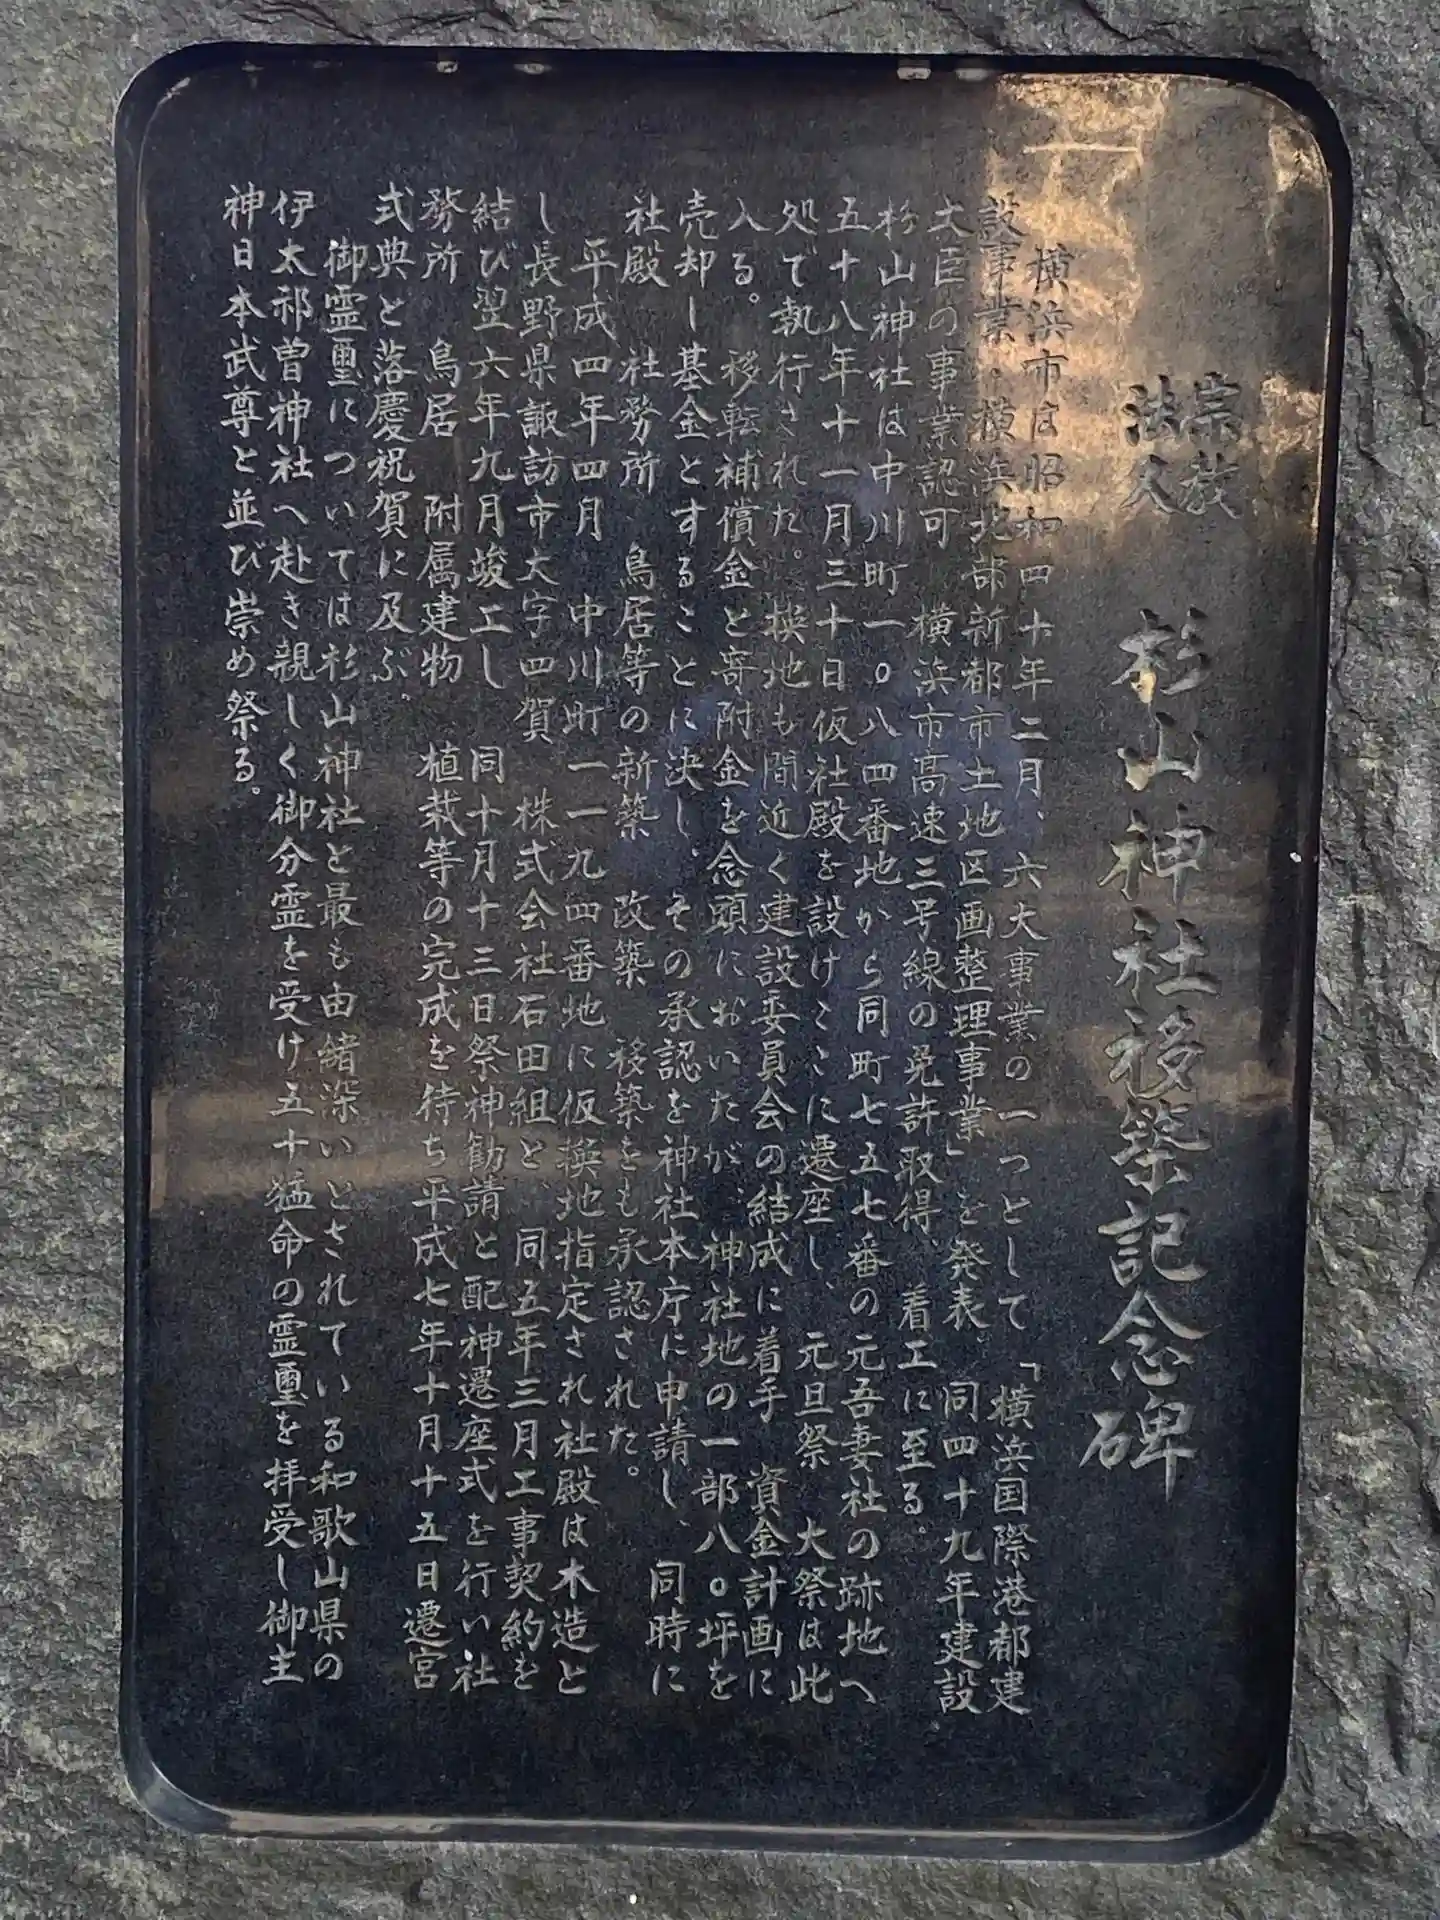 宗教
法人
杉山神社移築記念碑
横浜市は昭和四十年二月、六大事業の一つとして「横浜国際港都建
設事業・横浜北部新都市土地区画整理事業」を発表、同四十九年建設
大臣の事業認可　横浜市高速三号線の免許取得、着工に至る。
杉山神社は中川町一〇八四番地から同町七五七番の元吾妻社の跡地へ
五十八年十一月三十日仮社殿を設けここに遷座し、元旦祭　大祭は此
処で執行された。換地も間近く建設委員会の結成に着手　資金計画に
入る。移転補償金と寄附金を念頭においたが、神社地の一部八〇坪を
売却し基金とすることに決し、その承認を神社本庁に申請し、同時に
社殿　社務所　鳥居等の新築　改築　移築をも承認された。
平成四年四月　中川町一一九四番地に仮換地指定され社殿は木造と
し長野県諏訪市大字四賀　株式会社石田組と、同五年三月工事契約を
結び翌六年九月竣工し　同十月十三日祭神勧請と配神遷座式を行い社
務所　鳥居　附属建物　植栽等の完成を待ち平成七年十月十五日遷宮
式典と落慶祝賀に及ぶ。
御霊璽については杉山神社と最も由緒深いとされている和歌山県の
伊太祁曽神社へ赴き親しく御分霊を受け五十猛命の霊璽を拝受し御主
神日本武尊と並び崇め祭る。